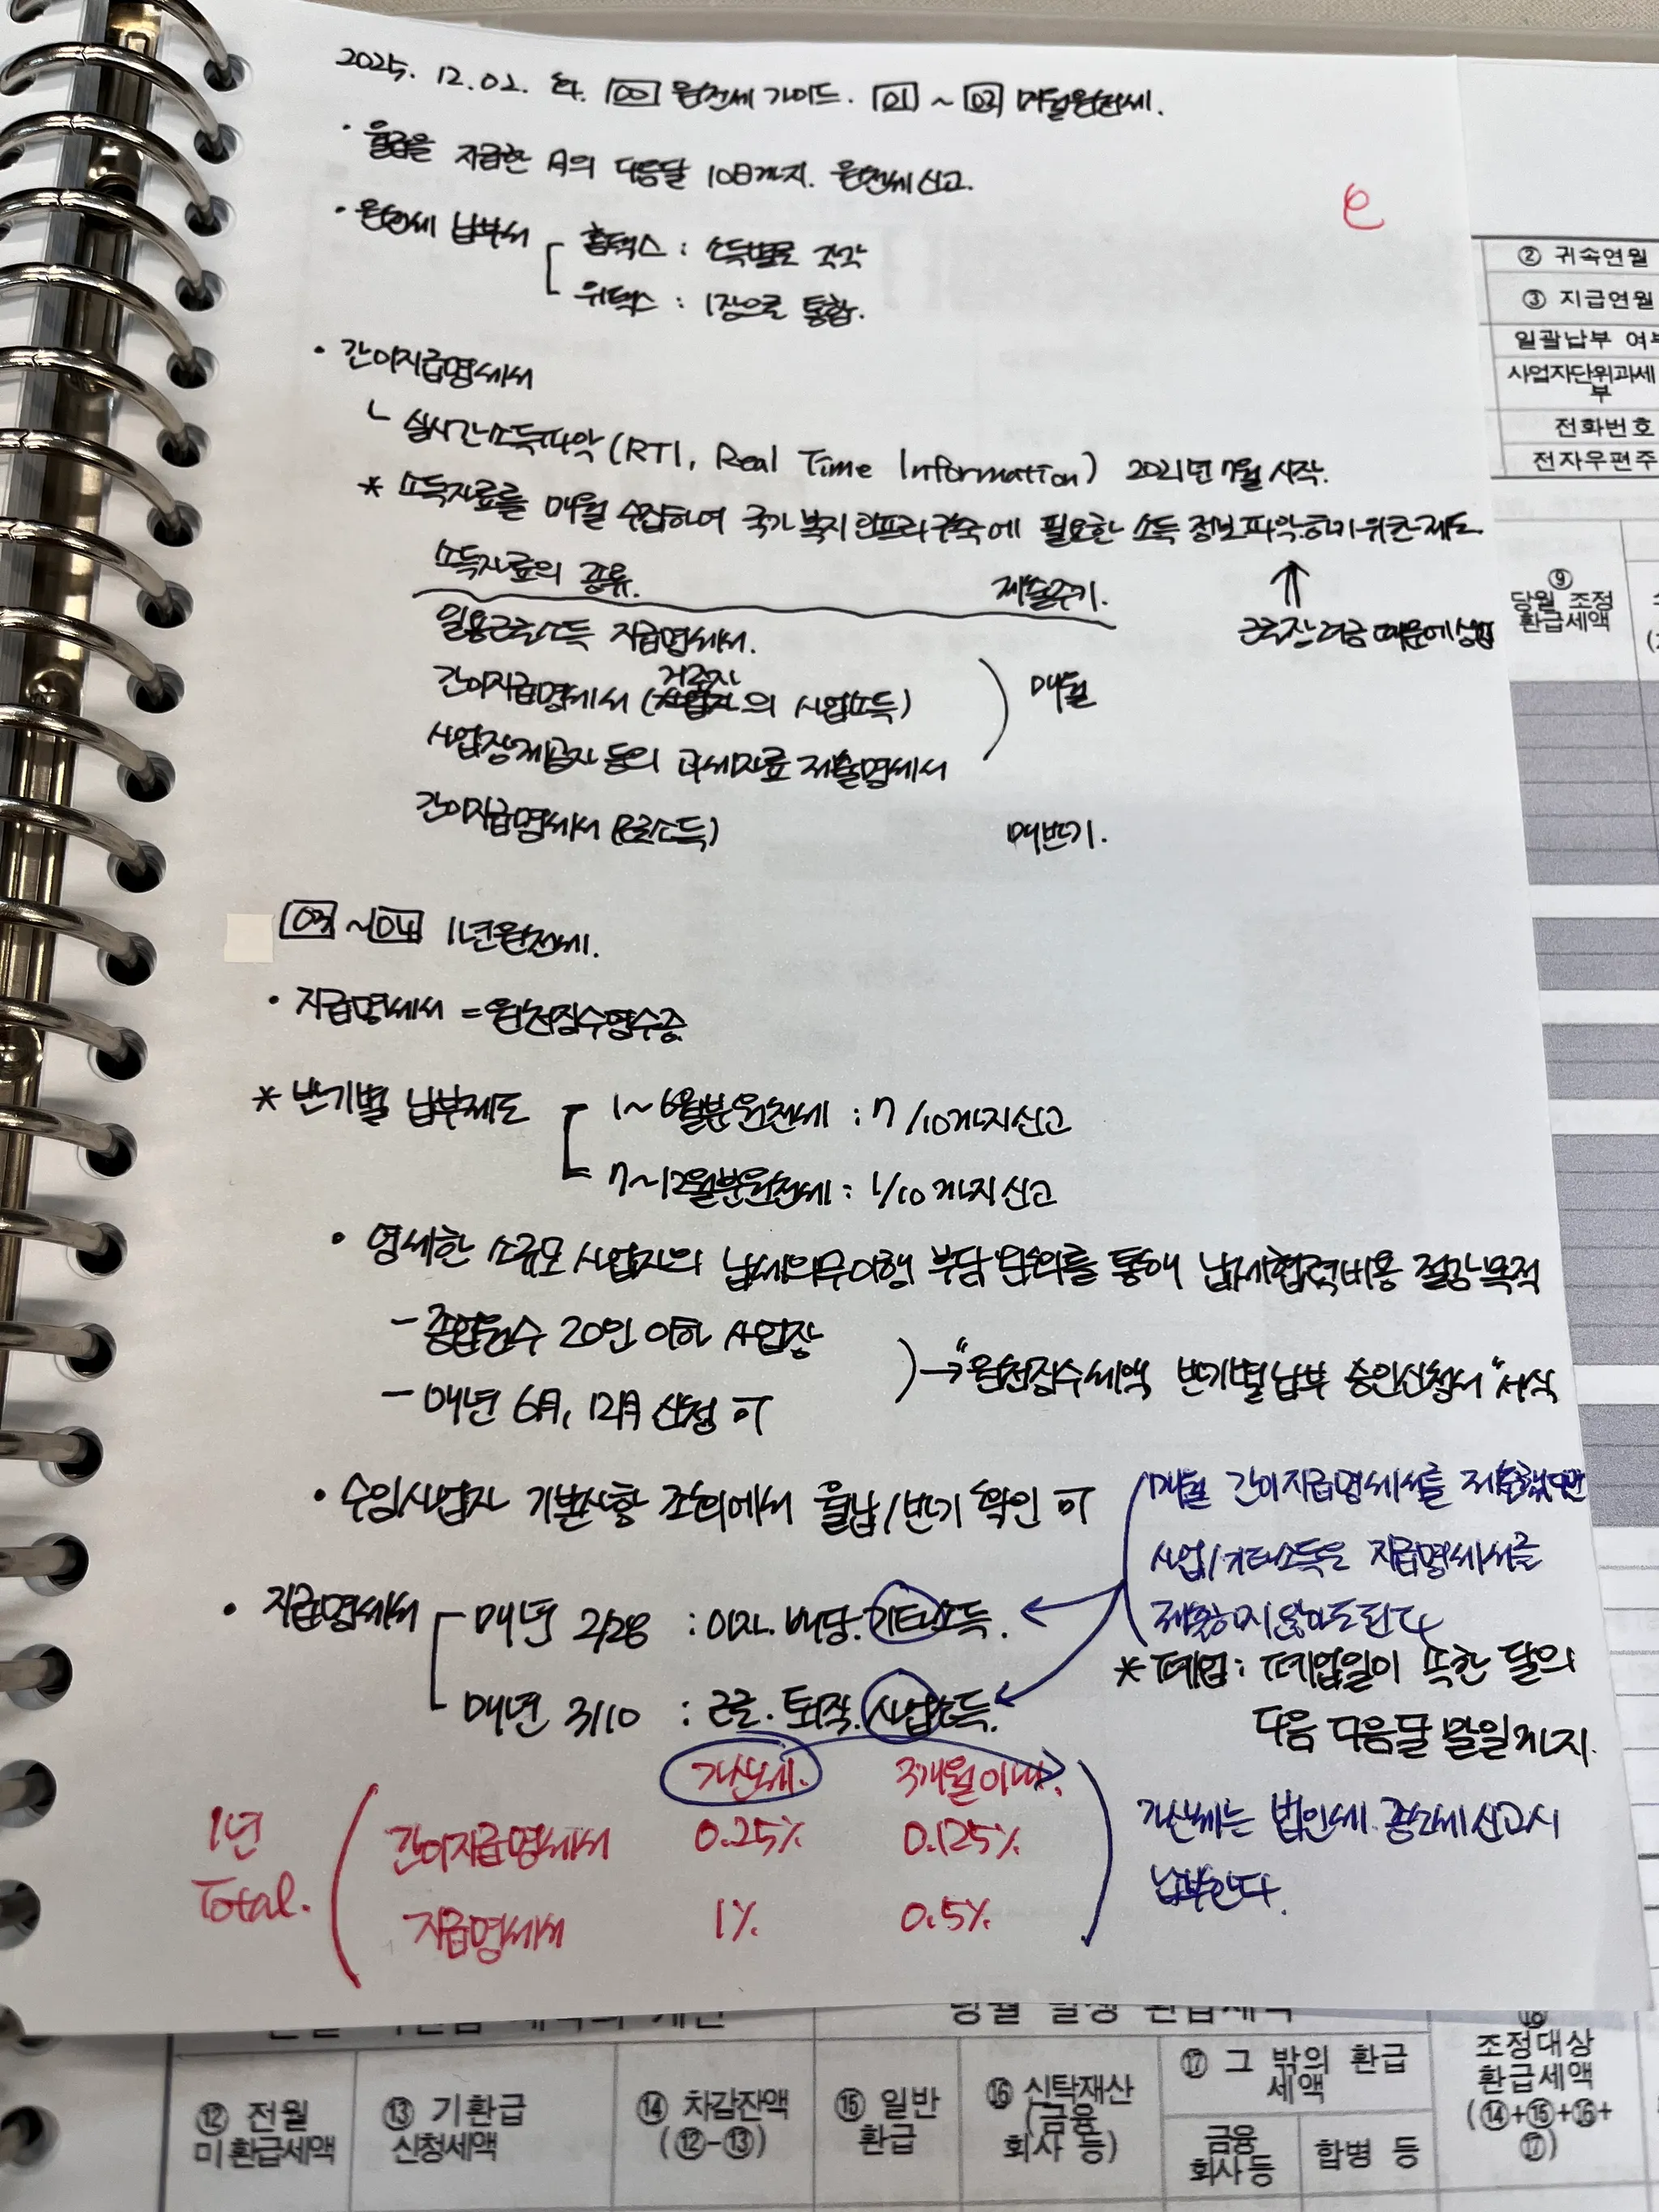 2025. 12. 02. 화. 00 원천세 가이드. 01 ~ 02 매월원천세.
· 월급을 지급한 月의 다음달 10日까지. 원천세신고.
· 원천세 납부서
홈택스 : 소득별로 각각
위택스 : 1장으로 통합.
· 간이지급명세서
ㄴ 실시간소득파악 (RTI, Real Time Information) 2021년 7월 시작.
* 소득자료를 매월 수집하여 국가 복지 인프라 구축에 필요한 소득 정보 파악하기 위한 제도
↑
근로장려금 때문에 생김
소득자료의 종류. 제출주기.
일용근로소득 지급명세서.
거주자
간이지급명세서 (사업자의 사업소득) 매월
사업장제공자 등의 과세자료 제출명세서
간이지급명세서 (근로소득) 매반기.
03 ~ 04 1년원천세.
· 지급명세서 = 원천징수영수증
* 반기별 납부제도
1~6월분원천세 : 7/10까지신고
7~12월분원천세 : 1/10까지신고
· 영세한 소규모 사업자의 납세의무이행 부담 완화를 통해 납세협력비용 절감 목적
- 종업원수 20인 이하 사업장
- 매년 6月, 12月 신청 可
→ "원천징수세액 반기별납부 승인신청서" 서식
· 수임사업자 기본사항 조회에서 월납/반기 확인 可
매월 간이지급명세서를 제출했다면
사업/기타소득은 지급명세서를
제출하지 않아도 된다
· 지급명세서
매년 2/28 : 이자. 배당. 기타소득.
매년 3/10 : 근로. 퇴직. 사업소득.
* 폐업 : 폐업일이 속한 달의
다음 다음달 말일까지.
가산세. 3개월이내.
1년 Total.
간이지급명세서 0.25% 0.125%
지급명세서 1% 0.5%
가산세는 법인세. 종소세신고시
납부한다.
e
② 귀속연월
③ 지급연월
일괄납부 여부
사업자단위과세
부
전화번호
전자우편주
⑨
당월 조정
환급세액
당월 발생 환급세액
⑫ 전월
미환급세액
⑬ 기환급
신청세액
⑭ 차감잔액
(⑫-⑬)
⑮ 일반
환급
⑯ 신탁재산
(금융
회사 등)
⑰ 그 밖의 환급
세액
금융
회사 등
합병 등
⑱
조정대상
환급세액
(⑭+⑮+⑯+
⑰)